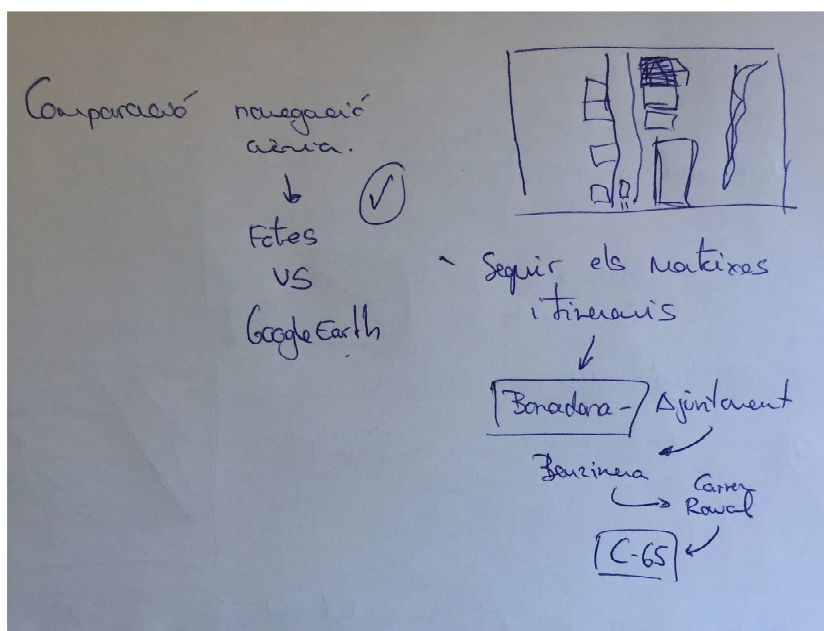 Comparació navegació
aèria.
Fotes
VS
Google Earth
Seguir els mateixos
itineraris
Bonadona - Ajuntament
Benzinera
Carrer
Raval
C-65